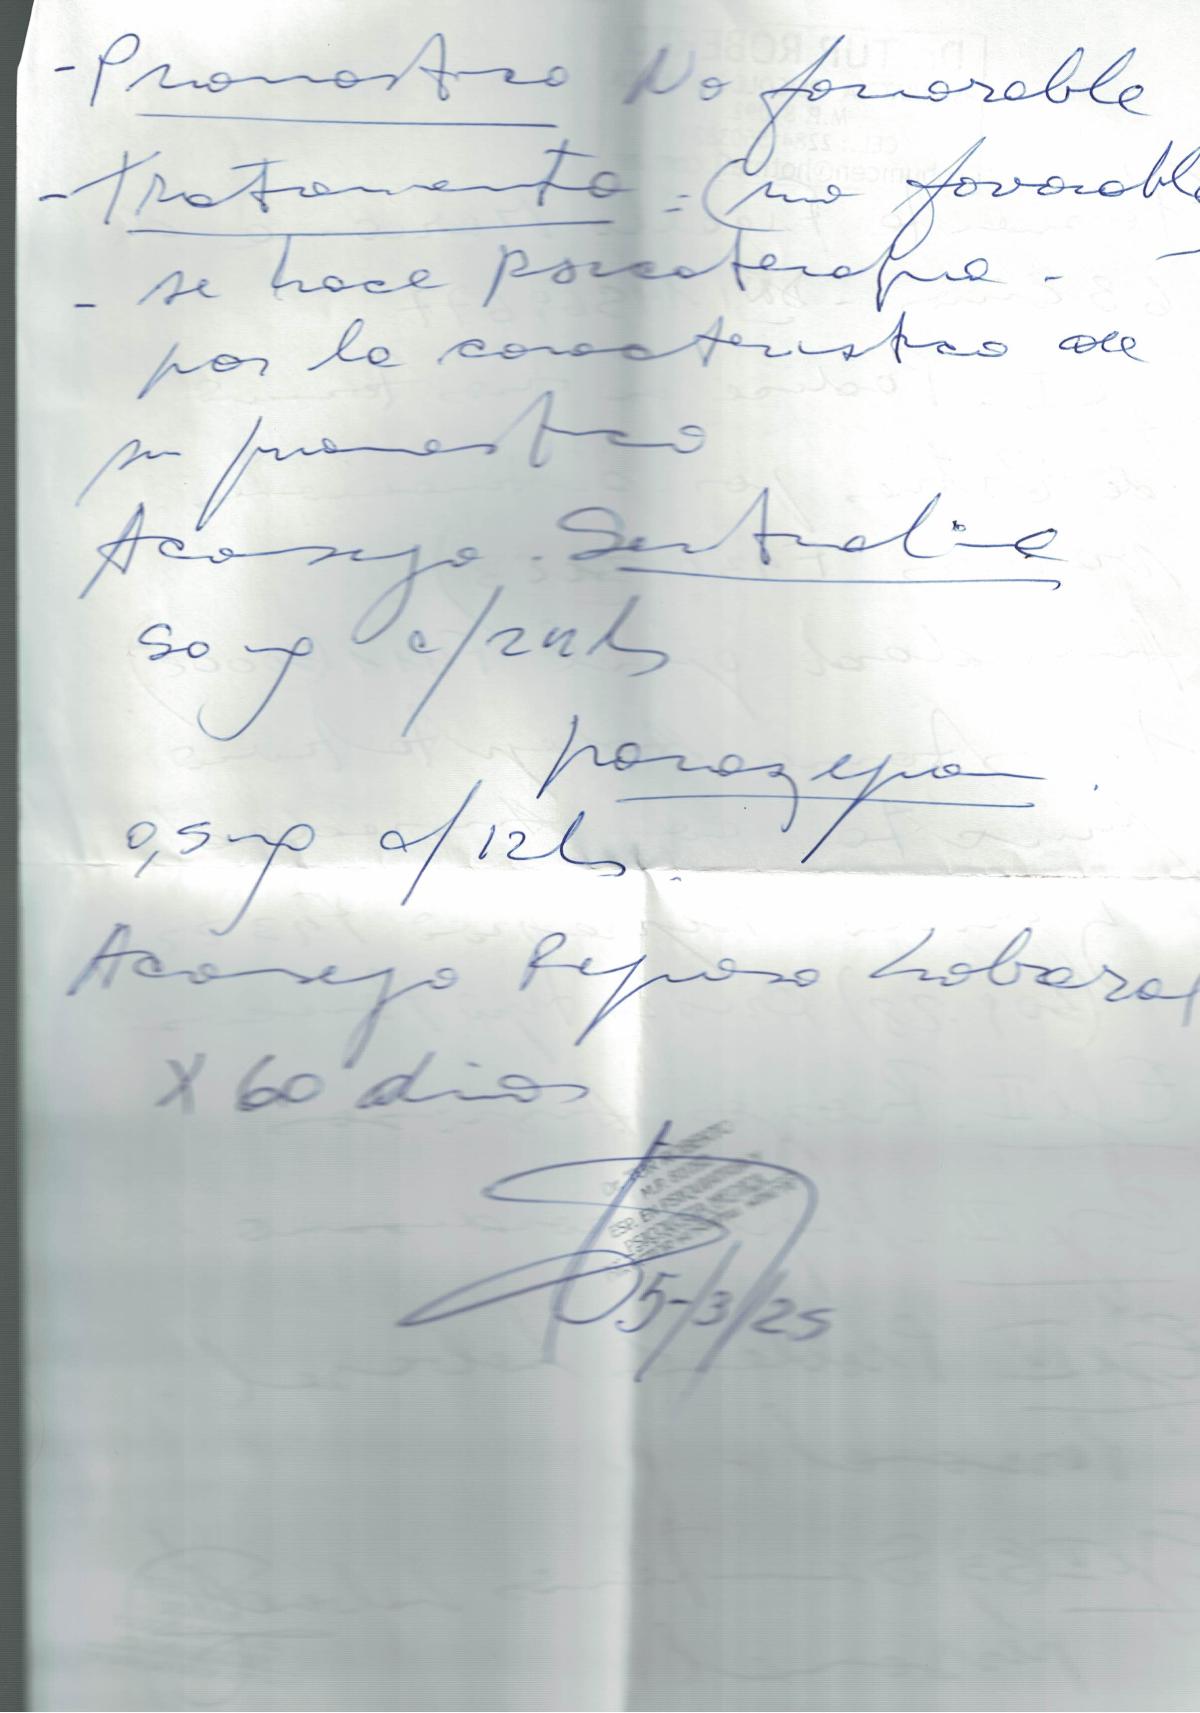 - Pronostico No favorable
- Tratamento - (no favorable
- se hace psicoterapia -
por la caracteristica de
su pronostico
Aconsejo - Sertralina
50 mg c/24 hs
0,5 mg c/12 hs.
Aconsejo Reposo Laboral
X 60 dias
5-/3/25